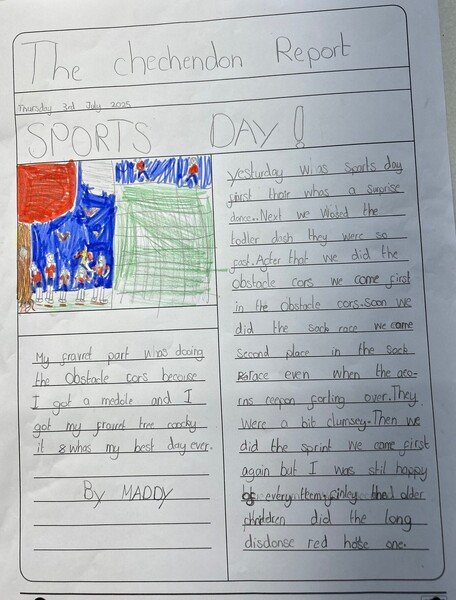 The chechendon Report
Thursday 3rd July 2025
SPORTS DAY!
Yesturday was Sports day
first thair whas a surprise
dance. Next we woced the
todler dash they were so
fast. After that we did the
obstacle cors we come first
in the obstacle cors. Soon we
did the sack race we came
second place in the sack
race even when the aco-
rns reepon forling over. They
were a bit clumsey. Then we
did the sprint we came first
again but I was stil happy
every the older
children did the long
disdonse red hose one.
My fravret part whas dooing
the obstacle cors becouse
I got a medole and I
got my fravret tree coocky
it whas my best day ever.
By MADDY